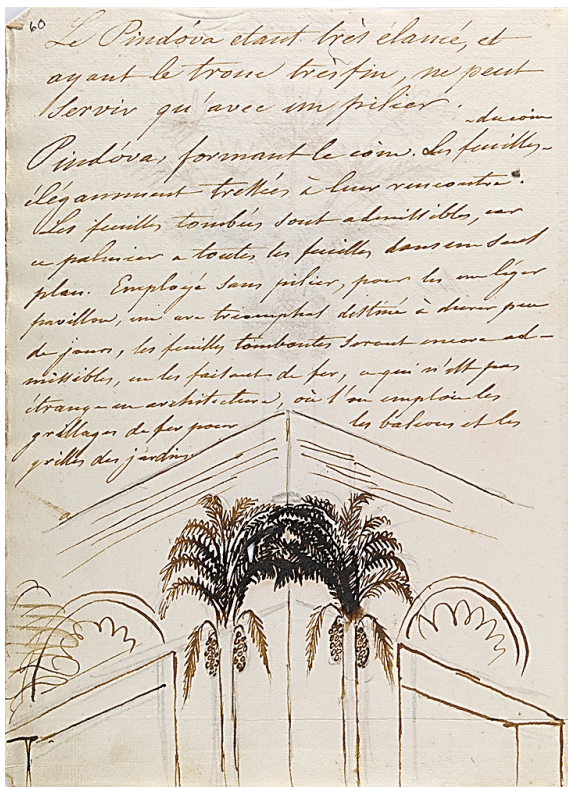 60
Le Pindóva étant très élancé, et
ayant le tronc très fin, ne peut
servir qu'avec un pilier.
Pindóvas formant le coin. Les feuilles
du coin
élégamment trettées à leur rencontre.
Les feuilles tombées sont admissibles, car
ce palmier a toutes les feuilles dans un seul
plan. Employé sans pilier, pour les un léger
pavillon, un arc triomphal destiné à durer peu
de jours, les feuilles tombantes seront encore ad-
missibles, en les faisant de fer, ce qui n'est pas
étrange en architecture, où l'on emploie les
grillages de fer pour les balcons et les
grilles des jardins